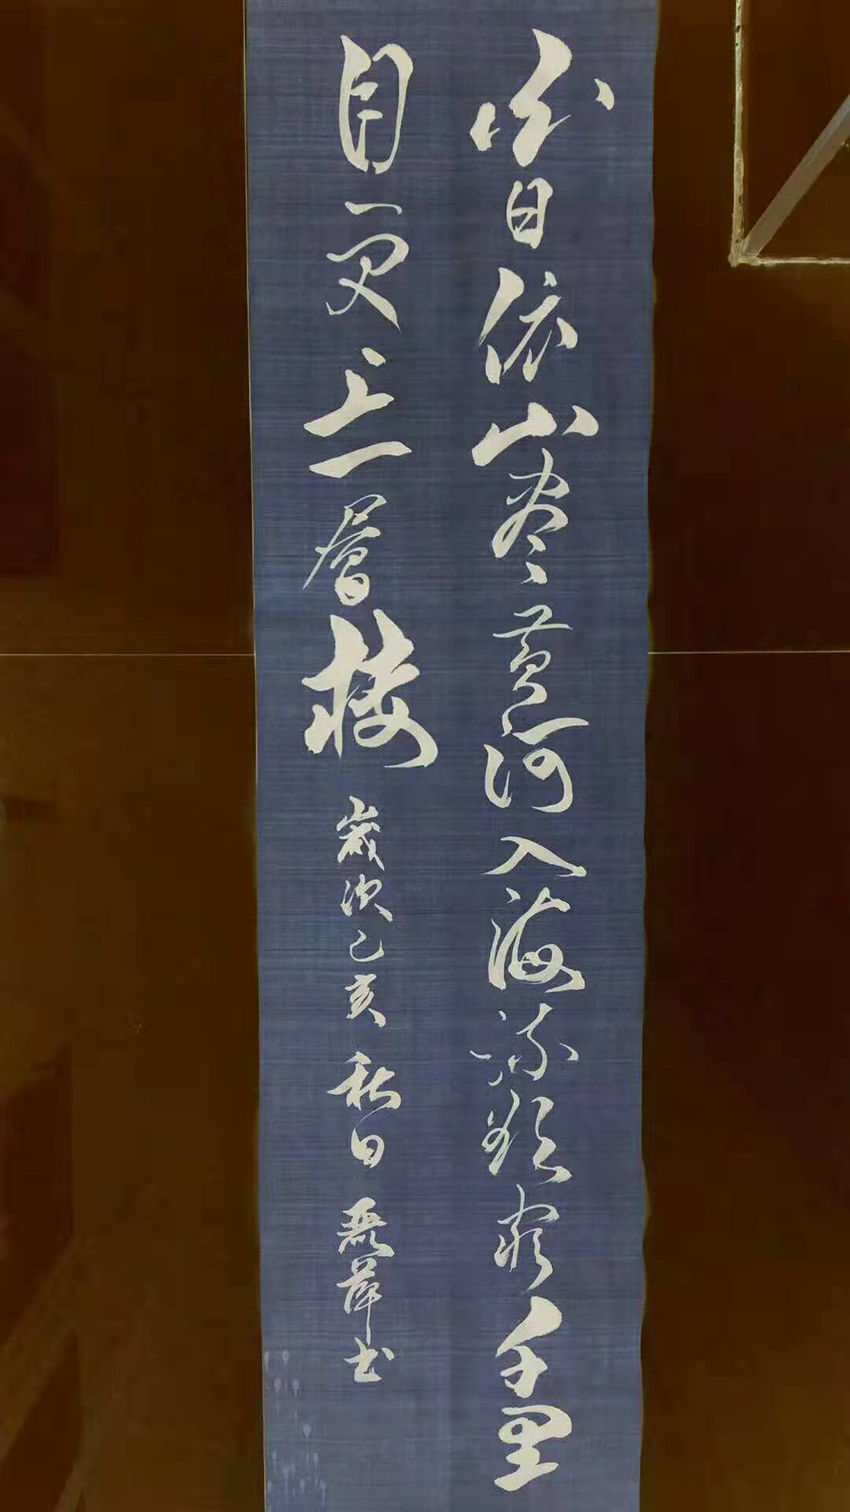 白日依山尽黄河入海流欲穷千里
目更上一層楼 歲次己亥 秋日 书